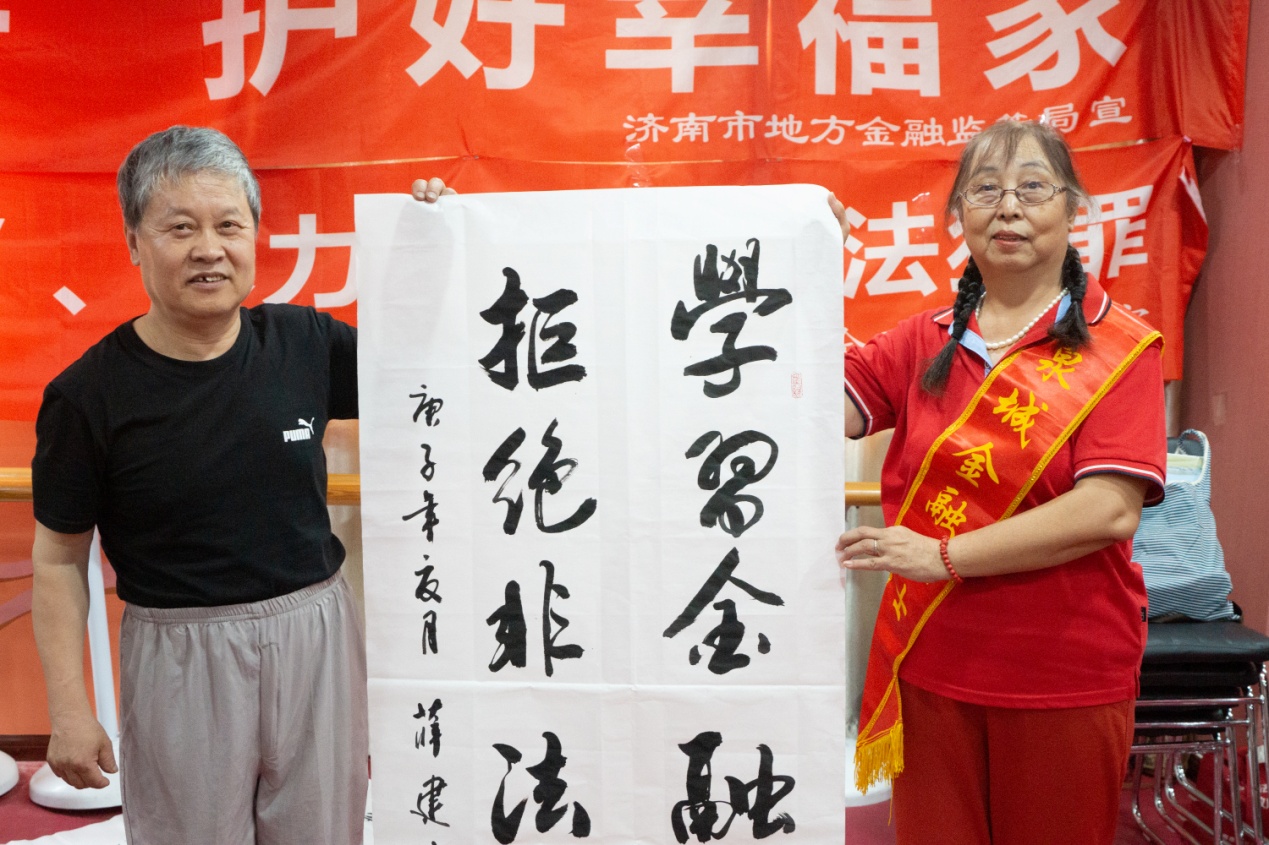 护好幸福家
济南市地方金融监管局宣
力
法犯罪
學習金融
拒绝非法
庚子年夏月 薛建
PUMA
泉城金融